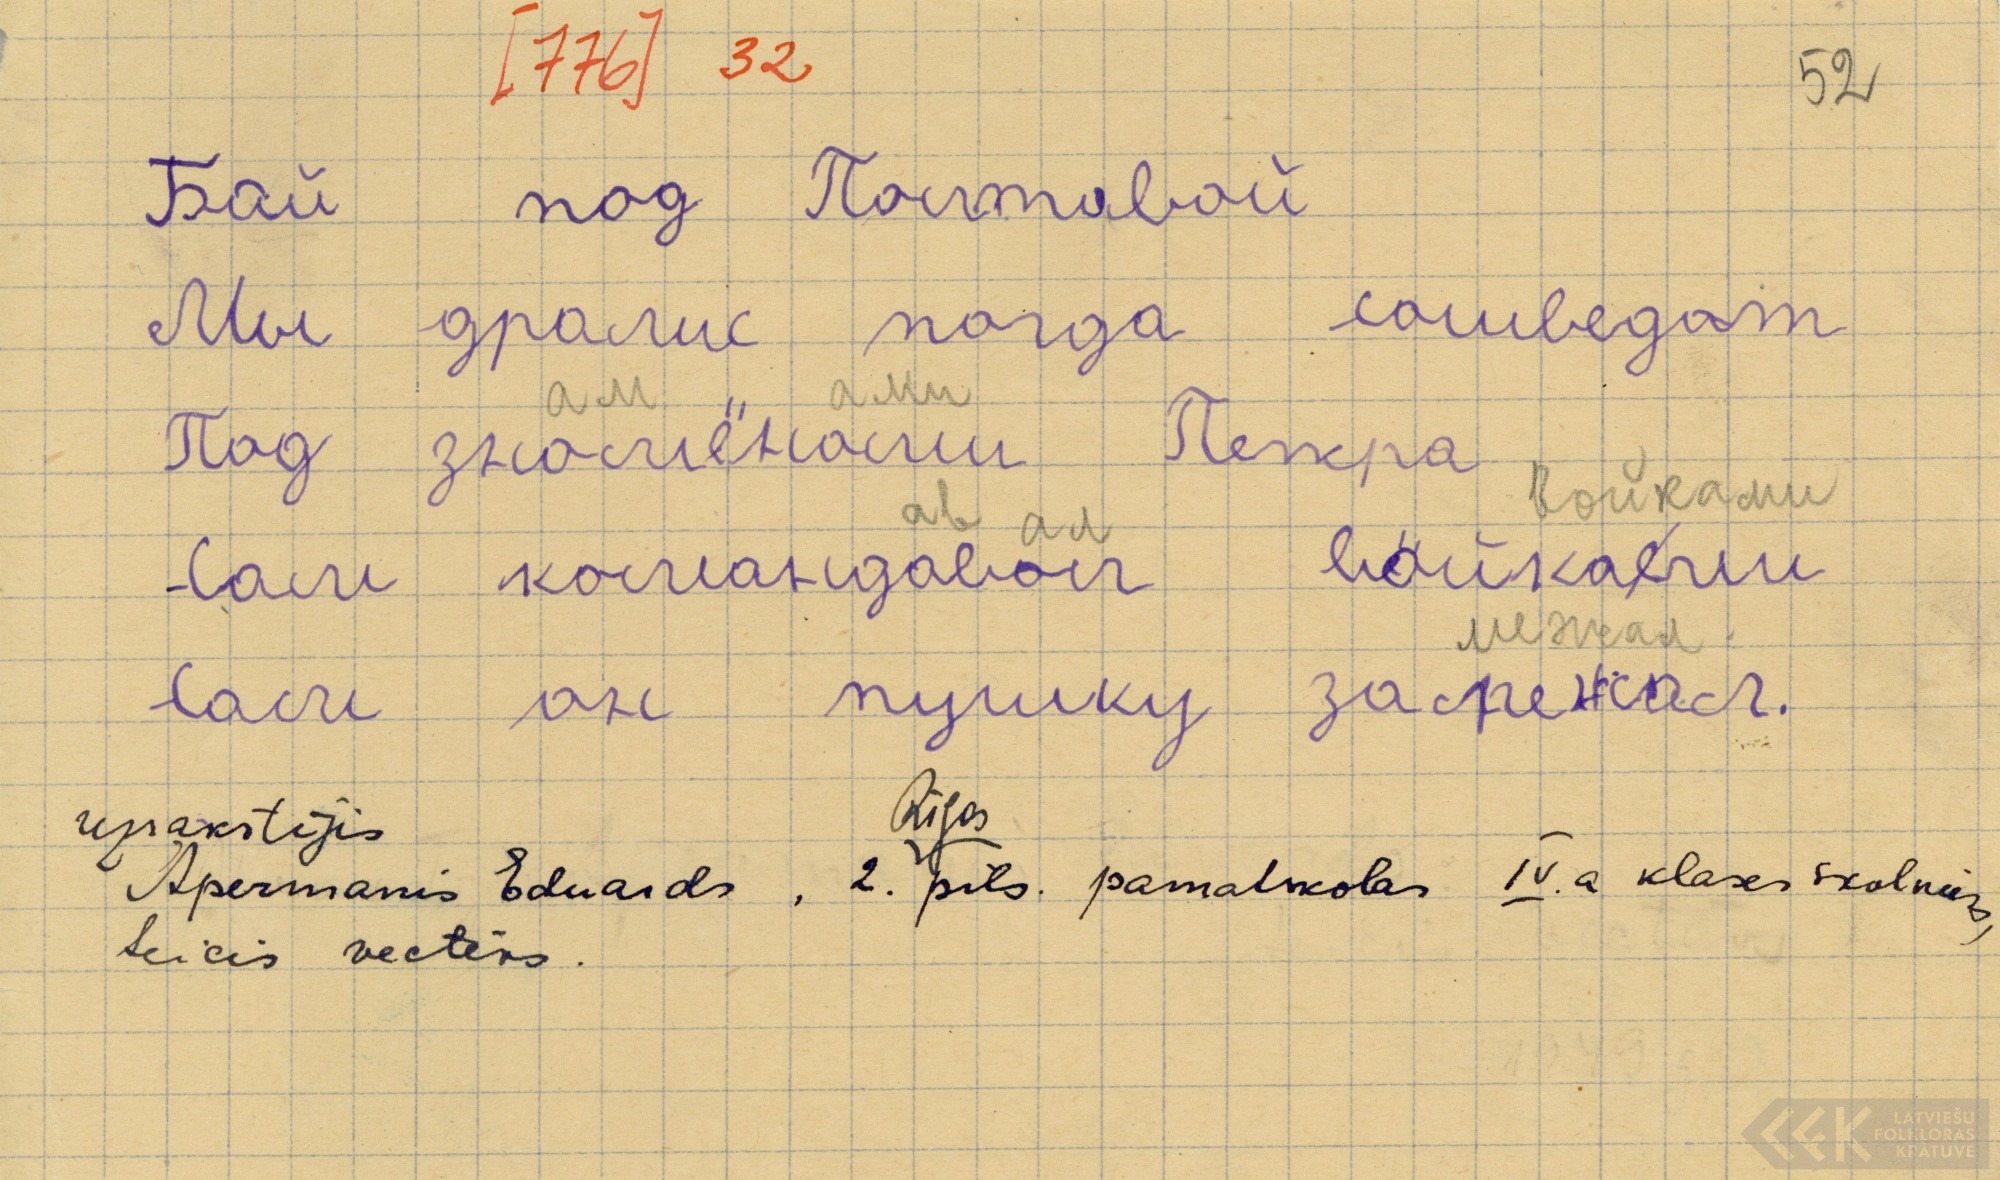 [776] 32
52
Бай под Полтавой
Мы дралис погда сошведат
ам ами
Под знамёнами Петра
ав ал войками
Сам командавал войками
межал
Сам он пушку замежал.
uzrakstījis
Rīgas
Apermanis Eduards, 2. pils. pamatskolas IV.a klases skolnieks,
teicis vectēvs.
LATVIEŠU
FOLKLORAS
KRĀTUVE